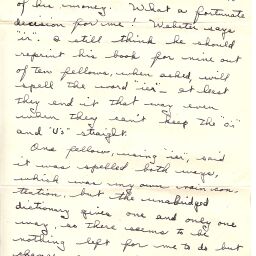 of his money. What a fortunate
decision for me! Webster says
"is". I still think he should
reprint his book for nine out
of ten fellows, when asked, will
spell the word "ies" - at least
they end it that way even
when they can't keep the "o's"
and "u's" straight.
One fellow, using "ies", said
it was spelled both ways,
which was my own main con-
tention, but the unabridged
dictionary gives one and only one
way, so there seems to be
nothing left for me to do but